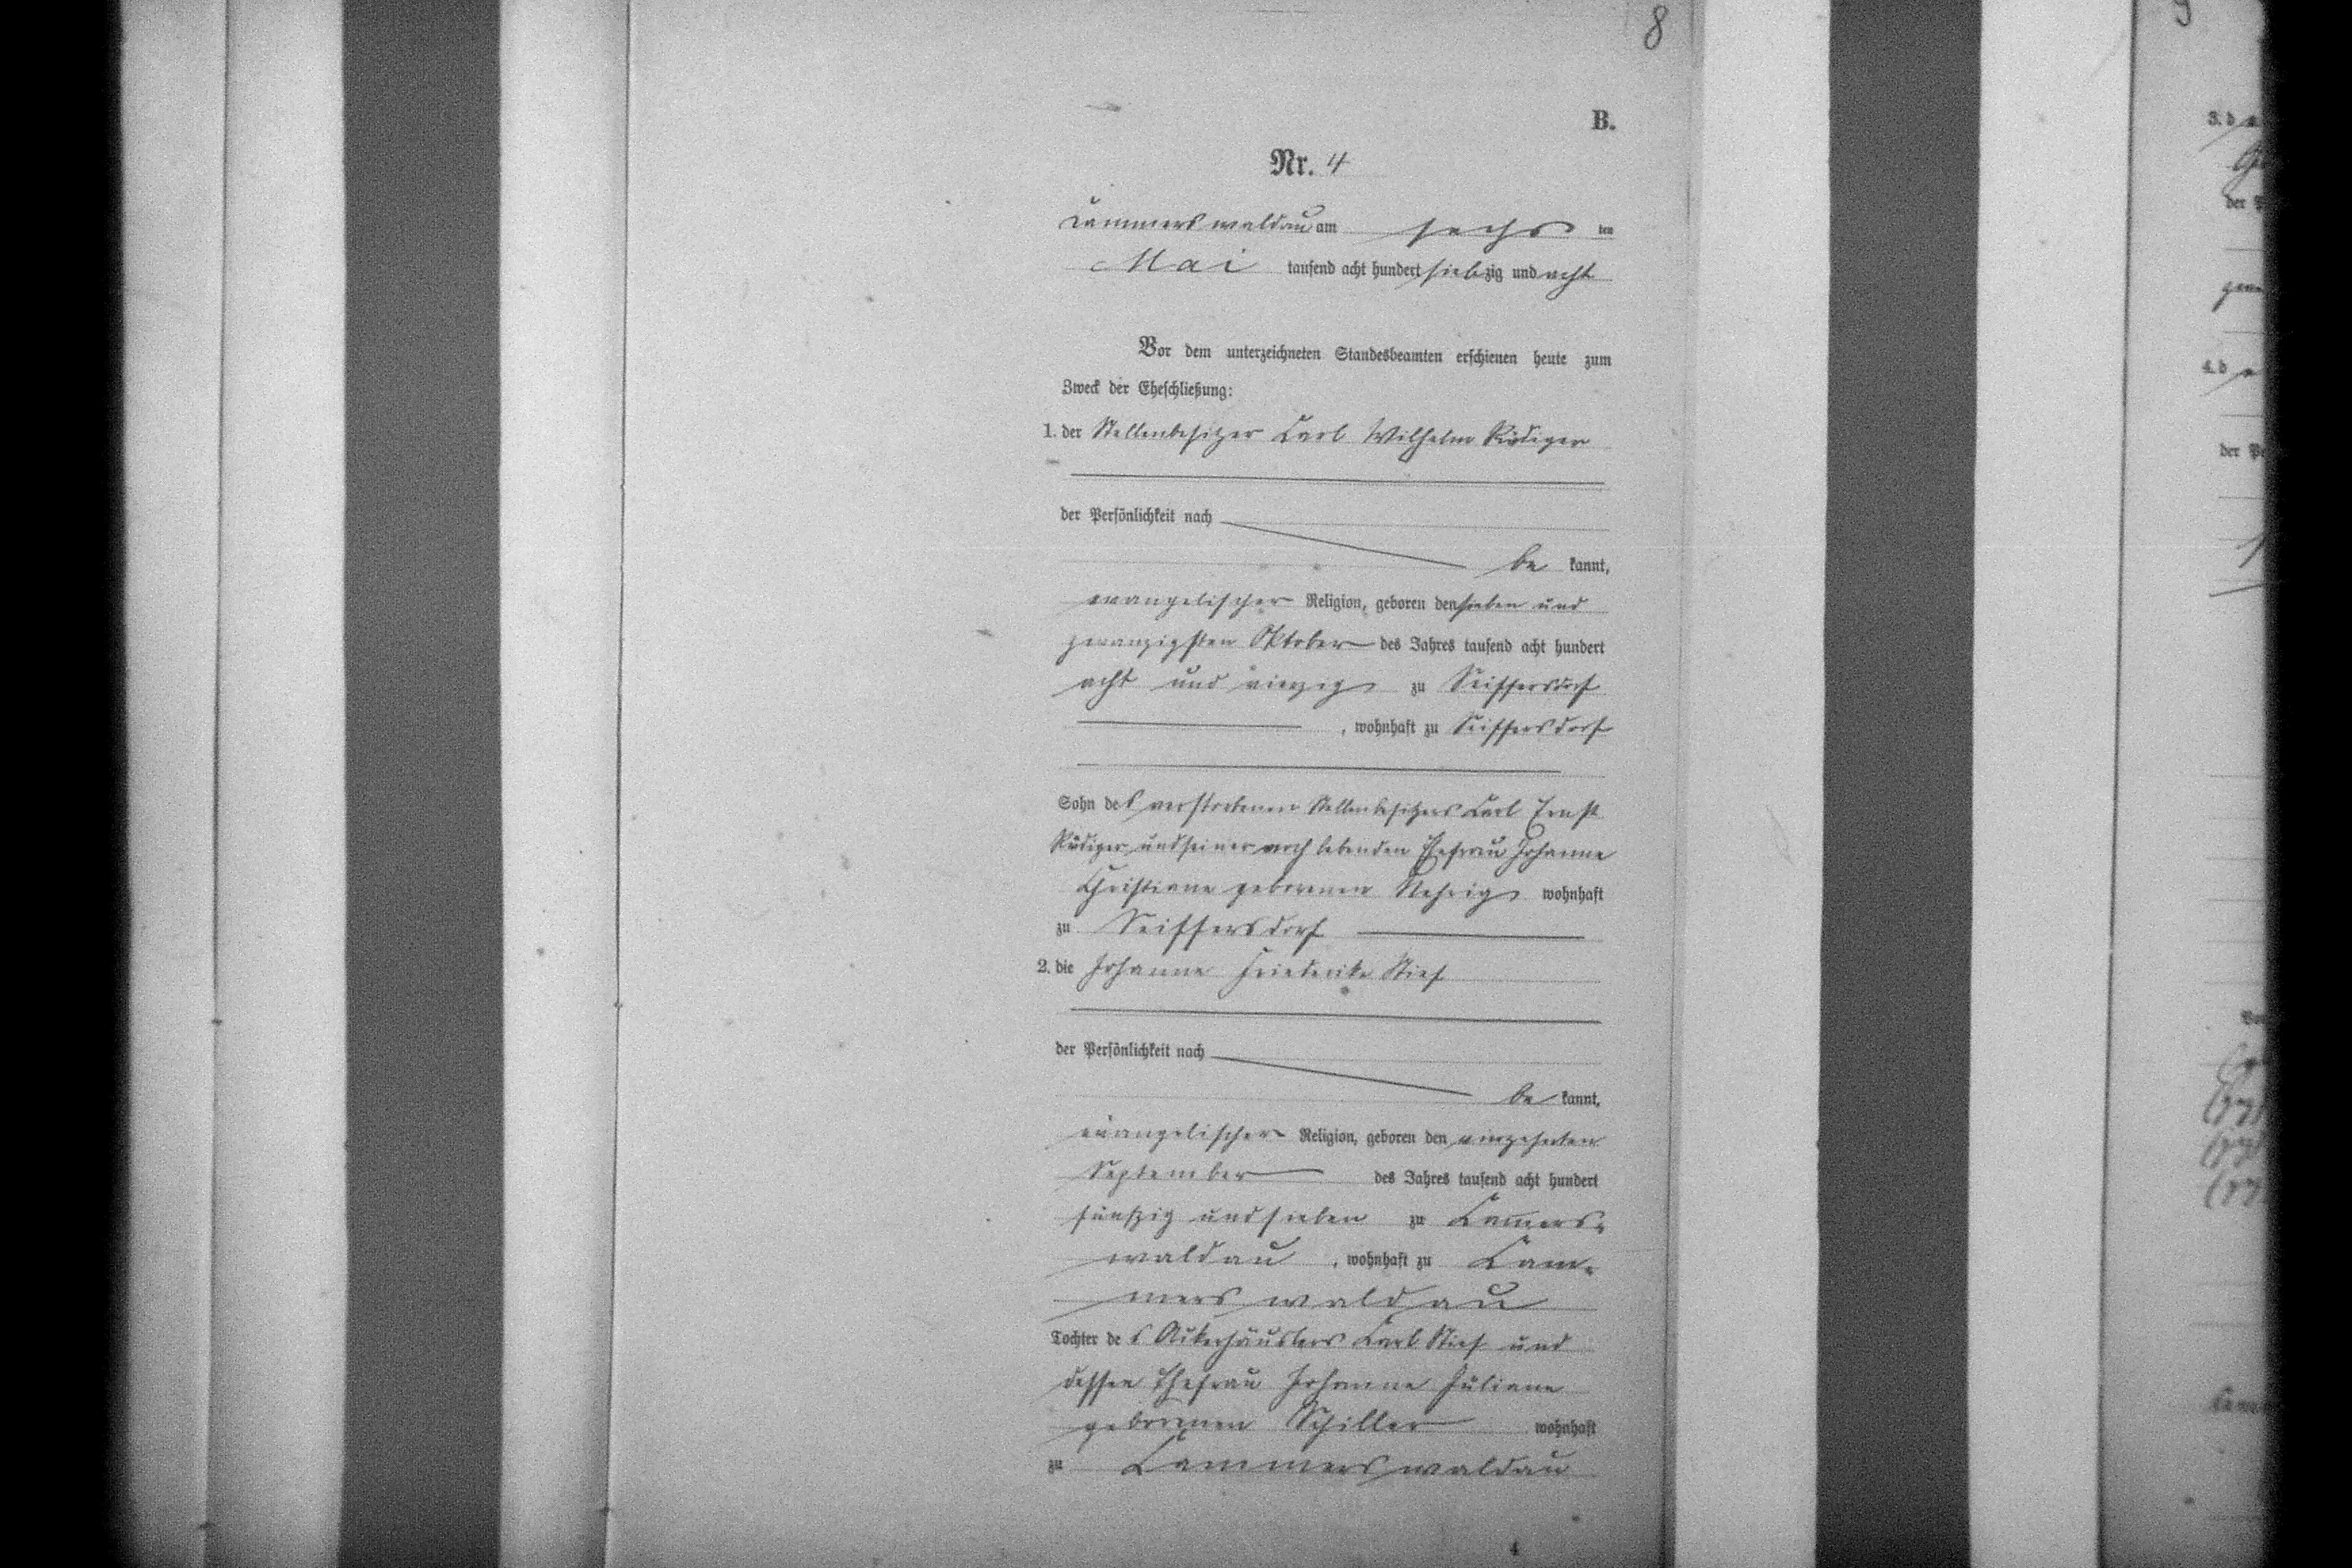 8
B.
Nr. 4
Cammerswaldau am sechs ten
Mai tausend acht hundert siebzig und acht
Vor dem unterzeichneten Standesbeamten erschienen heute zum
Zweck der Eheschließung:
1. der Stellenbesitzer Carl Wilhelm Rüdiger
der Persönlichkeit nach
be kannt,
evangelischer Religion, geboren den sieben und
zwanzigsten Oktober des Jahres tausend acht hundert
acht und vierzig zu Seiffersdorf
, wohnhaft zu Seiffersdorf
Sohn des verstorbenen Stellenbesitzers Carl Ernst
Rüdiger und seiner noch lebenden Ehefrau Johanne
Christiane geborenen Nehrig wohnhaft
zu Seiffersdorf
2. die Johanne Friederike Stief
der Persönlichkeit nach
be kannt,
evangelischer Religion, geboren den vierzehnten
September des Jahres tausend acht hundert
fünfzig und sieben zu Cam̅ers-
waldau , wohnhaft zu Cam-
merswaldau
Tochter des Ackerhäuslers Carl Stief und
dessen Ehefrau Johanne Juliane
geborenen Schiller wohnhaft
zu Cammerswaldau
4
3. d
der P
4. d
der Pe